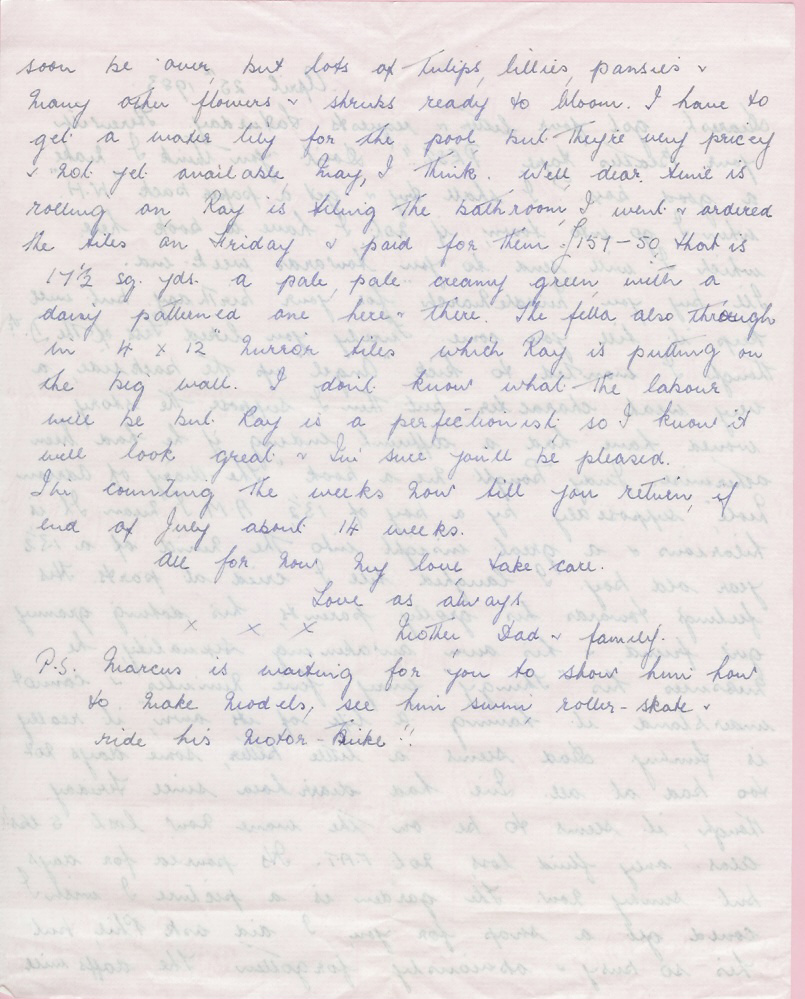 soon be over, but lots of Tulips, lillies, pansies &
many other flowers & shrubs ready to bloom. I have to
get a water lily for the pool but they're very pricey
& not yet available, May, I think. Well dear time is
rolling on Ray is tiling the bathroom, I went & ordered
the tiles on Friday & paid for them £151-50 that is
17½ sq. yds. a pale, pale creamy green with a
daisy patterned one here & there. The fella also through
in 4 x 12" mirror tiles which Ray is putting on
the big wall. I don't know what the labour
will be but Ray is a perfectionist so I know it
will look great & I'm sure you'll be pleased.
I'm counting the weeks now till you return, if
end of July about 14 weeks.
All for now my love take care.
Love as always
x x x Mother Dad & family.
P.S. Marcus is waiting for you to show him how
to make models, see him swim, roller-skate &
ride his motor-Bike!!